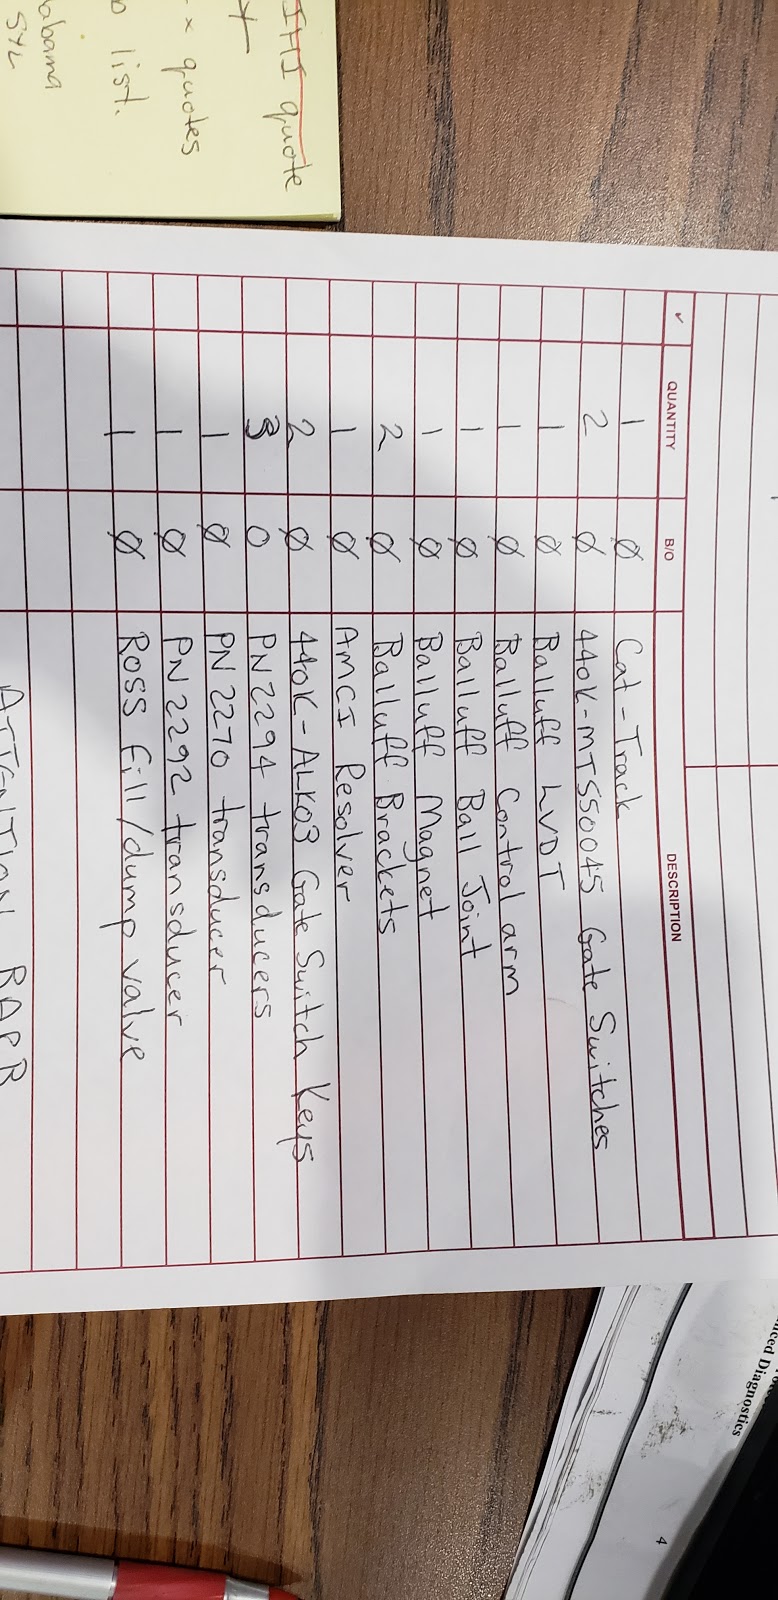 IHI quote
x quotes
list.
QUANTITY B/O DESCRIPTION
1 Ø Cat-Track
2 Ø 440K-MTS50045 Gate Switches
1 Ø Balluff LVDT
1 Ø Balluff Control arm
1 Ø Balluff Ball Joint
1 Ø Balluff Magnet
2 Ø Balluff Brackets
1 Ø AMCI Resolver
2 Ø 440K-ALK03 Gate Switch Keys
3 0 PN2294 transducers
1 Ø PN2270 transducer
1 Ø PN2292 transducer
1 Ø Ross fill/dump valve
ATTENTION
Diagnostics
4